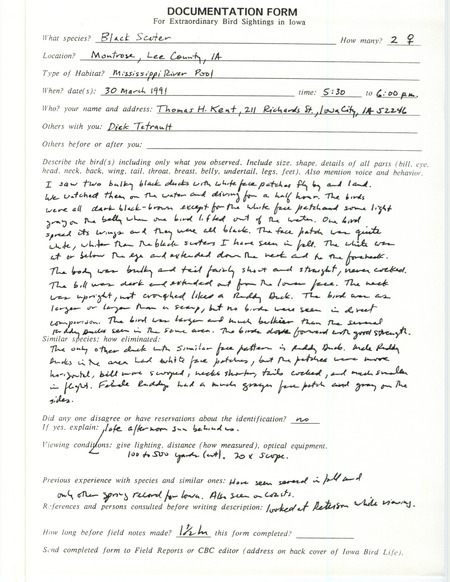 DOCUMENTATION FORM
For Extraordinary Bird Sightings in Iowa
What species? Black Scoter How many? 2 ♀
Location? Montrose, Lee County, IA
Type of Habitat? Mississippi River Pool
When? date(s): 30 March 1991 time: 5:30 to 6:00 p.m.
Who? your name and address: Thomas H. Kent, 211 Richards St., Iowa City, IA 52246
Others with you: Dick Tetrault
Others before or after you:
Describe the bird(s) including only what you observed. Include size, shape, details of all parts (bill, eye,
head, neck, back, wing, tail, throat, breast, belly, undertail, legs, feet). Also mention voice and behavior.
I saw two bulky black ducks with white face patches fly by and land.
We watched them on the water and diving for a half hour. The birds
were all dark black-brown except for the white face patch and some light
gray on the belly when one bird lifted out of the water. One bird
spread its wings and they were all black. The face patch was quite
white, whiter than the black scoters I have seen in fall. The white was
at or below the eye and extended down the neck and to the foreneck.
The body was bulky and tail fairly short and straight, never cocked.
The bill was dark and extended out from the lower face. The neck
was upright, not crouched like a Ruddy Duck. The bird was as
large or larger than a scaup, but no birds were seen in direct
comparison. The bird was larger and much bulkier than the several
Ruddy Ducks seen in the same area. The birds dove forward with good strength.
Similar species: how eliminated:
The only other duck with similar face pattern is Ruddy Duck. Male Ruddy
Ducks in the area had white face patches, but the patches were more
horizontal, bill more scooped, necks shorter, tails cocked, and much smaller
in flight. Female Ruddys had a much grayer face patch and gray on the
sides.
Did any one disagree or have reservations about the identification? no
If yes, explain: late afternoon sun behind us.
Viewing conditions: give lighting, distance (how measured), optical equipment.
100 to 500 yards (est). 20x scope.
Previous experience with species and similar ones: Have seen several in fall and
only other spring record for Iowa. Also seen on coasts.
References and persons consulted before writing description: looked at Peterson while viewing.
How long before field notes made? 1½ hr this form completed?
Send completed form to Field Reports or CBC editor (address on back cover of Iowa Bird Life).